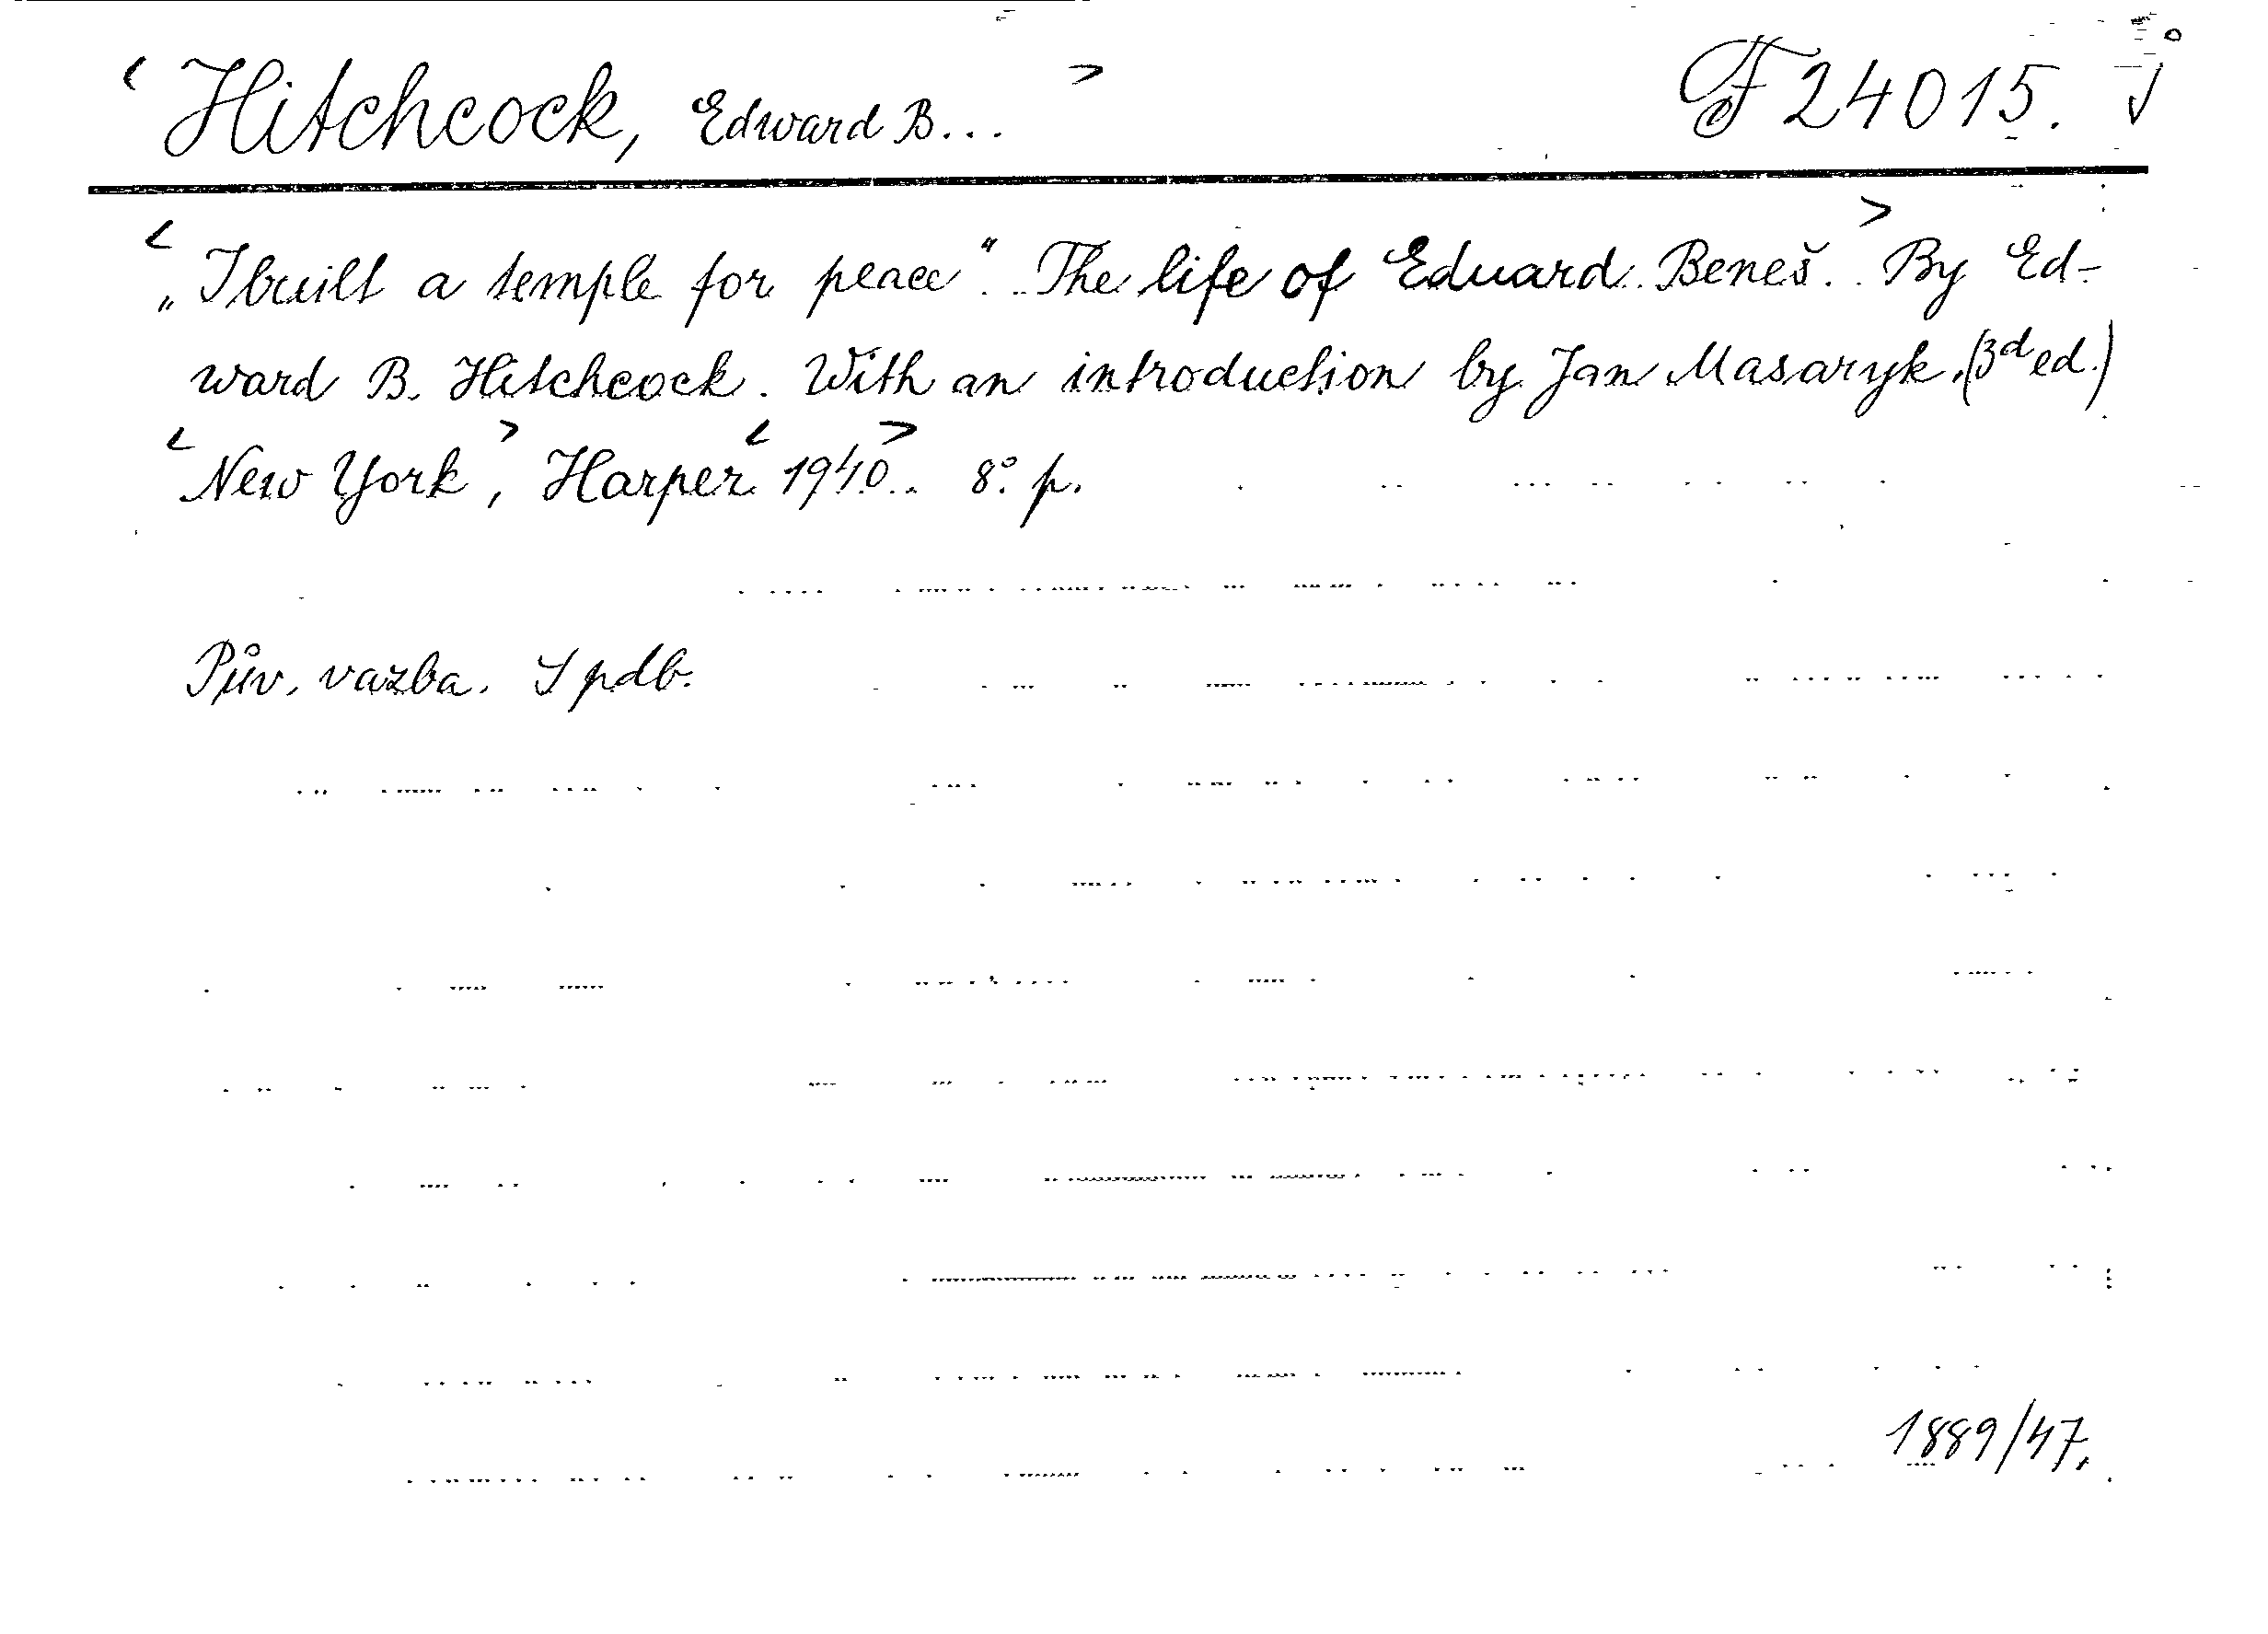 < Hitchcock, Edward B... > F 24015.
< „I built a temple for peace“. The life of Eduard Beneš. > By Ed-
ward B. Hitchcock. With an introduction by Jan Masaryk. (3d ed.)
< New York >, Harper < 1940. > 8°. p.
Pův. vazba. S pdb.
1889/47.